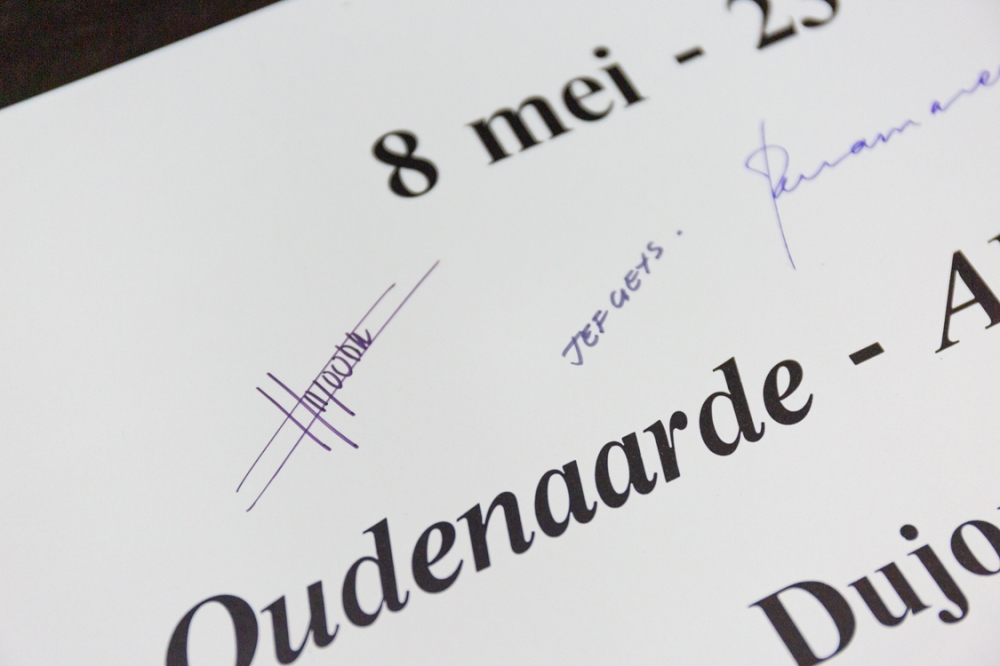 8 mei - 23
JEF GEYS.
Oudenaarde - A
Dujo